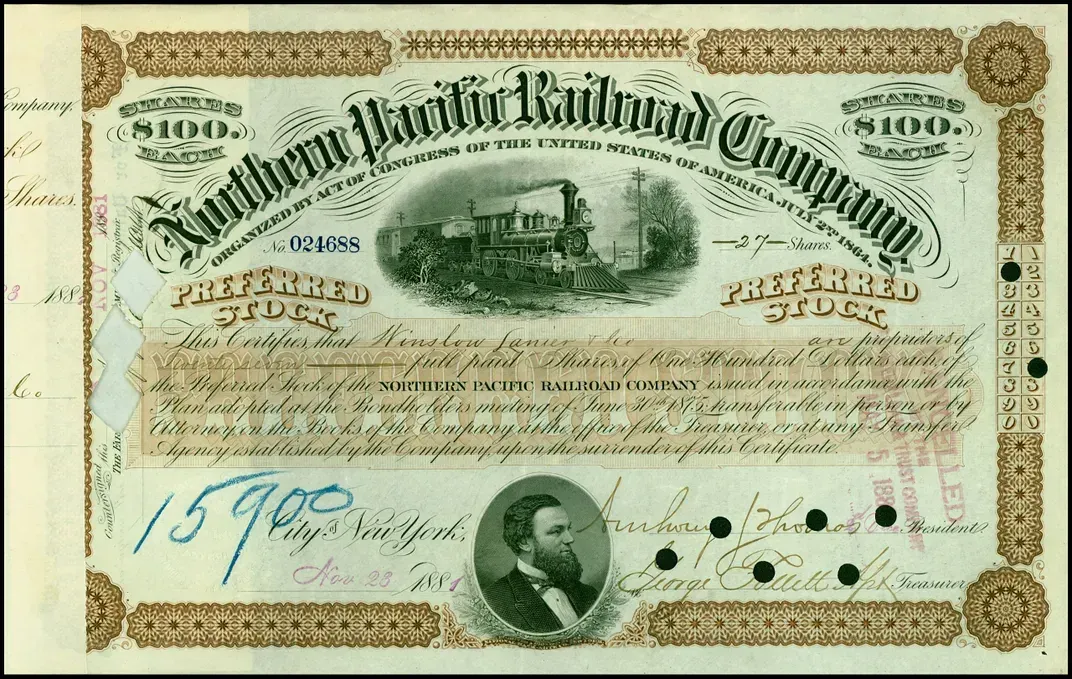 SHARES
$100.
EACH
SHARES
$100.
EACH
Northern Pacific Railroad Company,
ORGANIZED BY ACT OF CONGRESS OF THE UNITED STATES OF AMERICA, JULY 2ND 1864.
No. 024688
—27— Shares.
PREFERRED
STOCK
PREFERRED
STOCK
This Certifies, that Winslow Lanier & Co are proprietors of
Twenty seven full paid Shares of One Hundred Dollars each, of
the Preferred Stock of the NORTHERN PACIFIC RAILROAD COMPANY issued in accordance with the
Plan adopted at the Bondholders meeting of June 30th 1875, transferable in person or by
Attorney, on the Books of the Company, at the office of the Treasurer, or at any Transfer
Agency established by the Company, upon the surrender of this Certificate.
15900
City of New York,
Nov 23 1881
President
George Treasurer
1 1
2
3 3
4 4
5 5
6 6
7
8 8
9 9
0 0
Company.
Shares.
188
Co
NOV 1881
Registrar
Countersigned this
CANCELLED
TRUST COMPANY